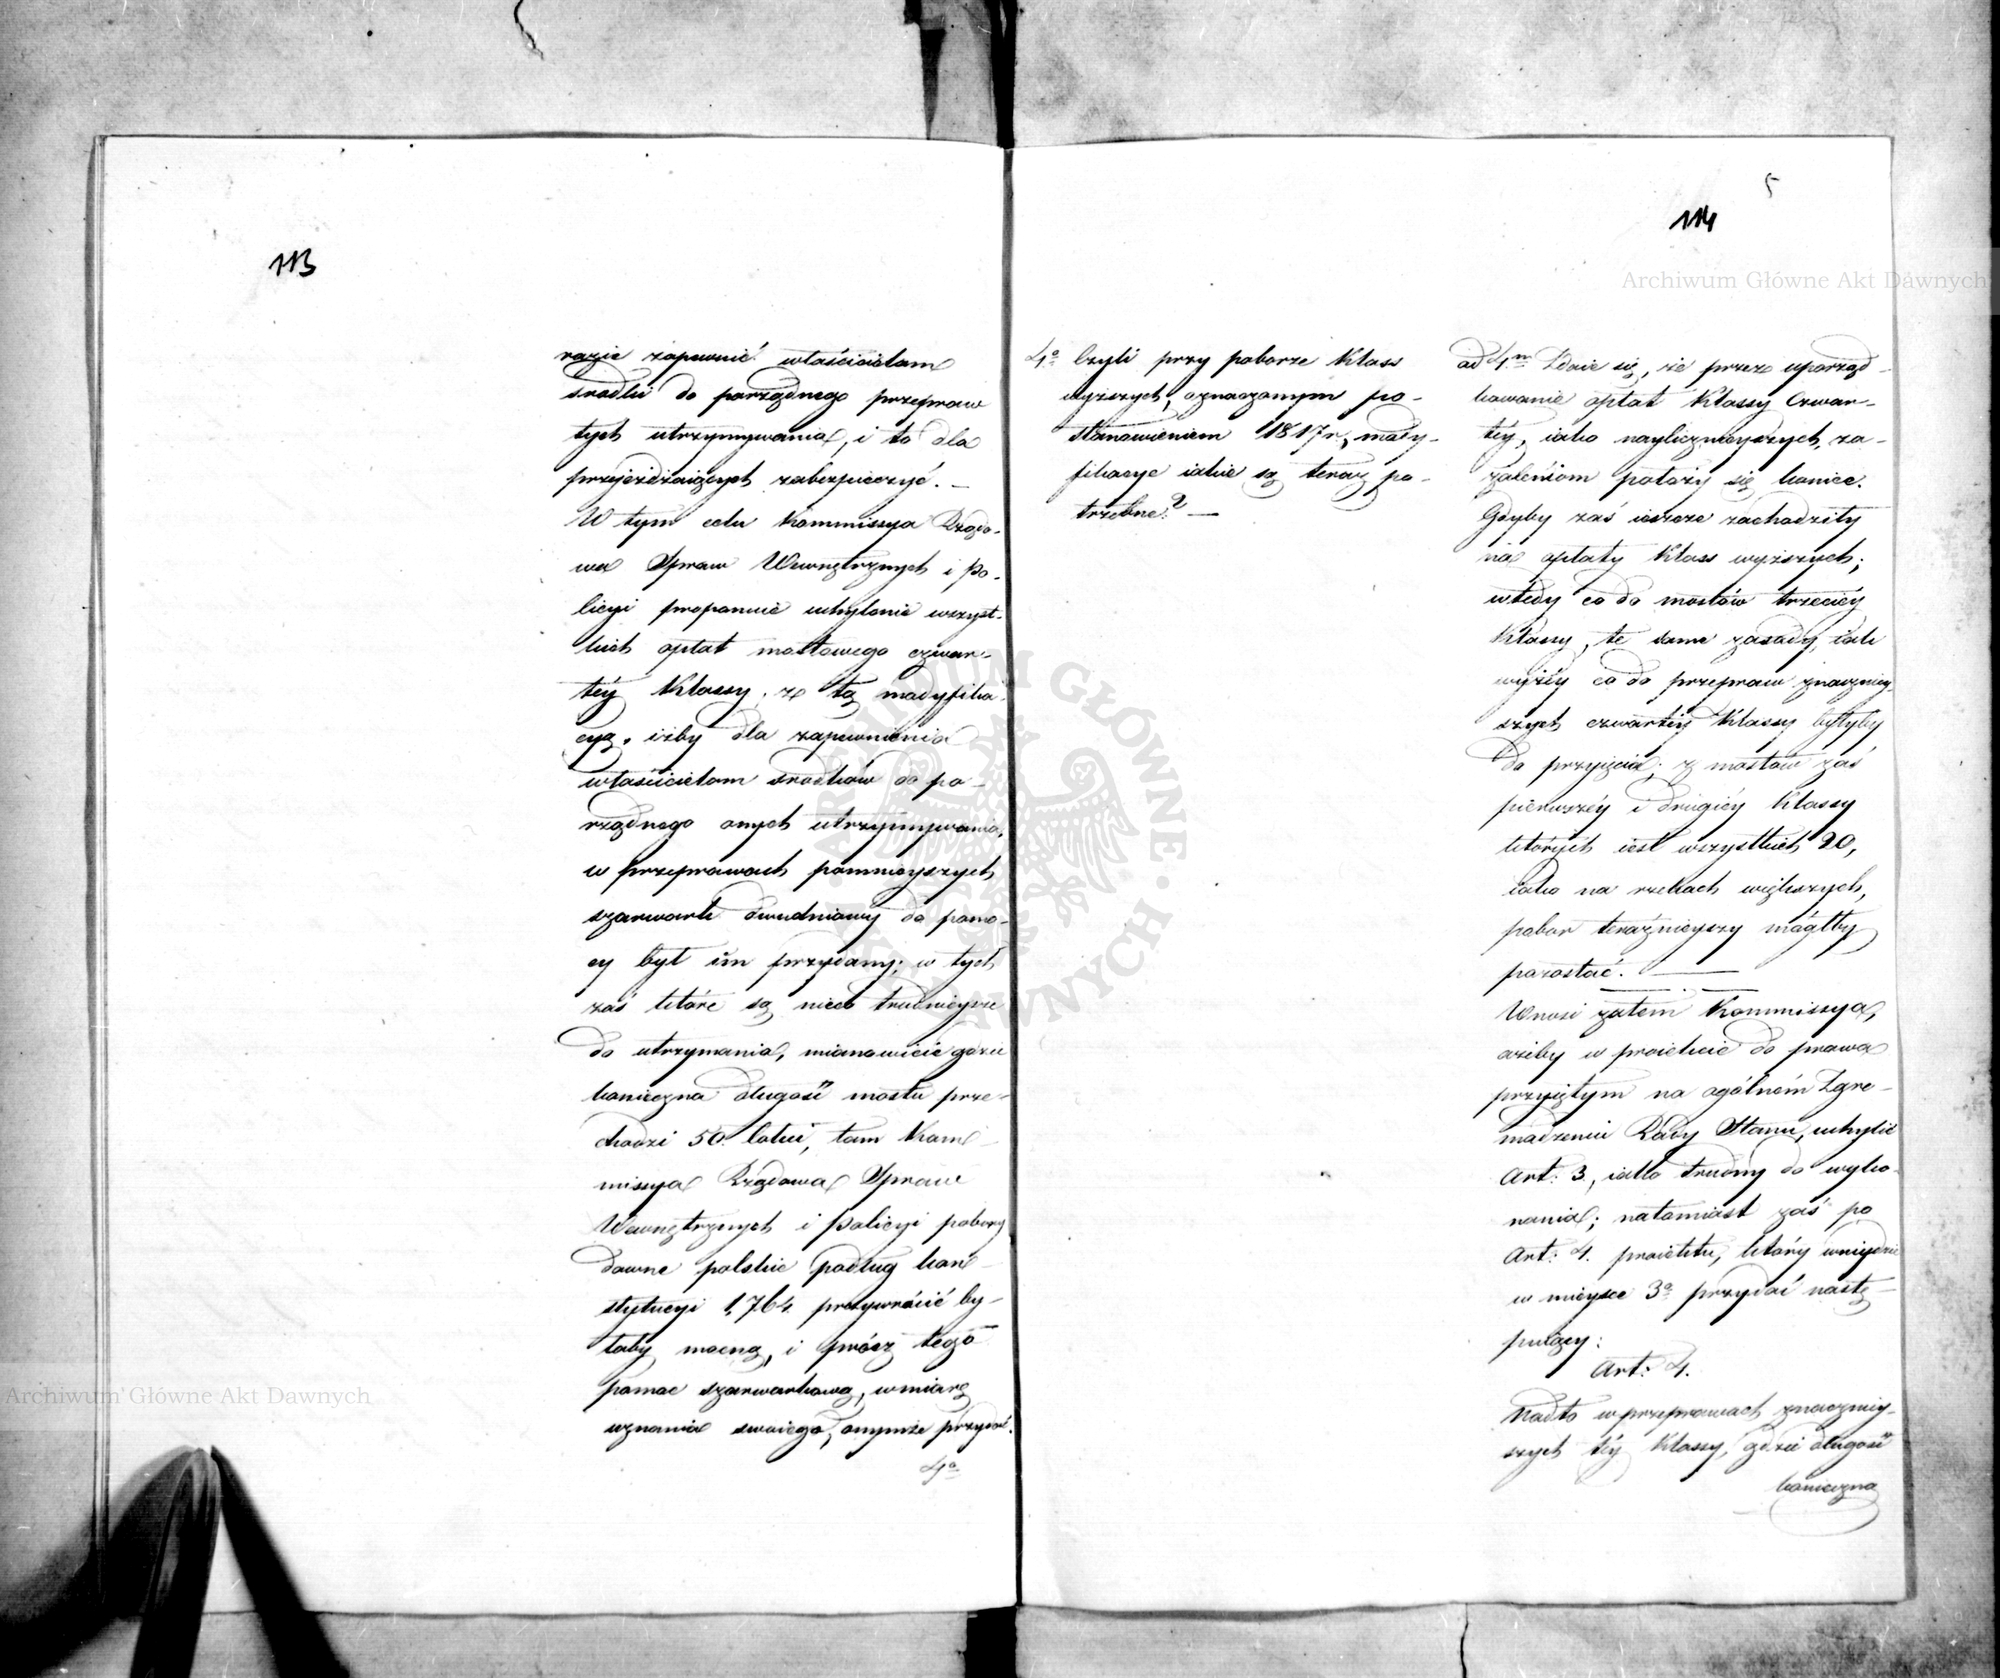 113
razie zapewnić właścicielom
srodki do porządnego przepraw
tych utrzymywania, i to dla
przejeżdżaiących zabezpieczyć. —
W tym celu Kommissya Rządo-
wa Spraw Wewnętrznych i Po-
licyi proponuie uchylenie wszyst-
kich opłat mostowego czwar-
téy Klassy, z tą modyfika-
cyą, iżby dla zapewnienia
właścicielom srodków do po-
rządnego onych utrzymywania,
w przeprawach pomnieyszych
szarwark dwudniowy do pomo-
cy był im przydany; w tych
zaś które są nieco trudnieysze
do utrzymania, mianowicie gdzie
konieczna długość mostu prze-
chodzi 50. łokci, tam Kom-
missya Rządowa Spraw
Wewnętrznych i Policyi pobory
dawne polskie podług kon-
stytucyi 1,764. przywrócić by-
łaby mocną, i prócz tego
pomoc szarwarkową, w miarę
uznania swoiego, onymże przydać.
4o
5
114
4o Czyli przy poborze Klass
wyższych, oznaczonym po-
stanowieniem 1817 r., mody-
fikacye iakie są teraz po-
trzebne? —
ad 4m Zdaie się, że przez uporząd-
kowanie opłat Klassy Czwar-
téy, iako naylicznieyszych, za-
żaleniom położy się koniec.
Gdyby zaś ieszcze zachodziły
na opłaty Klass wyższych;
wtedy co do mostów trzeciéy
Klassy, te same zasady, iak
wyżéy co do przepraw znaczniey-
szych czwartéy Klassy byłyby
do przyięcia; z mostów zaś
pierwszéy i drugiéy Klassy
których iest wszystkich 20,
iako na rzekach większych,
pobor teraźnieyszy mógłby
pozostać. —
Wnosi zatém Kommissya,
ażeby w proiekcie do prawa
przyiętym na ogólném Zgro-
madzeniu Rady Stanu, uchylić
Art: 3., iako trudny do wyko-
nania; natomiast zaś po
Art: 4. proiektu, który wniydzie
w mieysce 3o przydać nastę-
puiący:
Art: 4.
Nadto w przeprawach znaczniey-
szych téy Klassy, gdzie długość
konieczna
Archiwum Główne Akt Dawnych
Archiwum Główne Akt Dawnych
ARCHIWUM GŁÓWNE AKT DAWNYCH